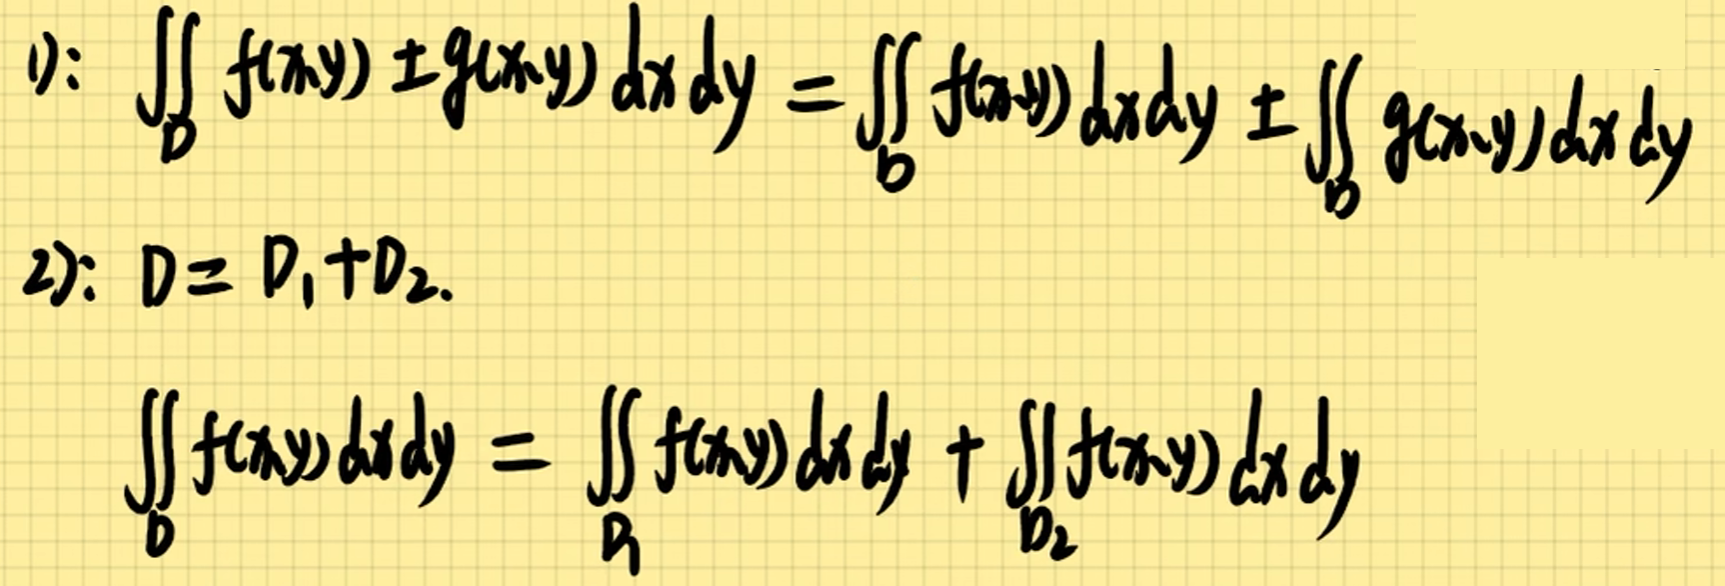 1): ∬_D f(x,y) ± g(x,y) dx dy = ∬_D f(x,y) dx dy ± ∬_D g(x,y) dx dy
2): D = D₁ + D₂.
∬_D f(x,y) dx dy = ∬_D₁ f(x,y) dx dy + ∬_D₂ f(x,y) dx dy